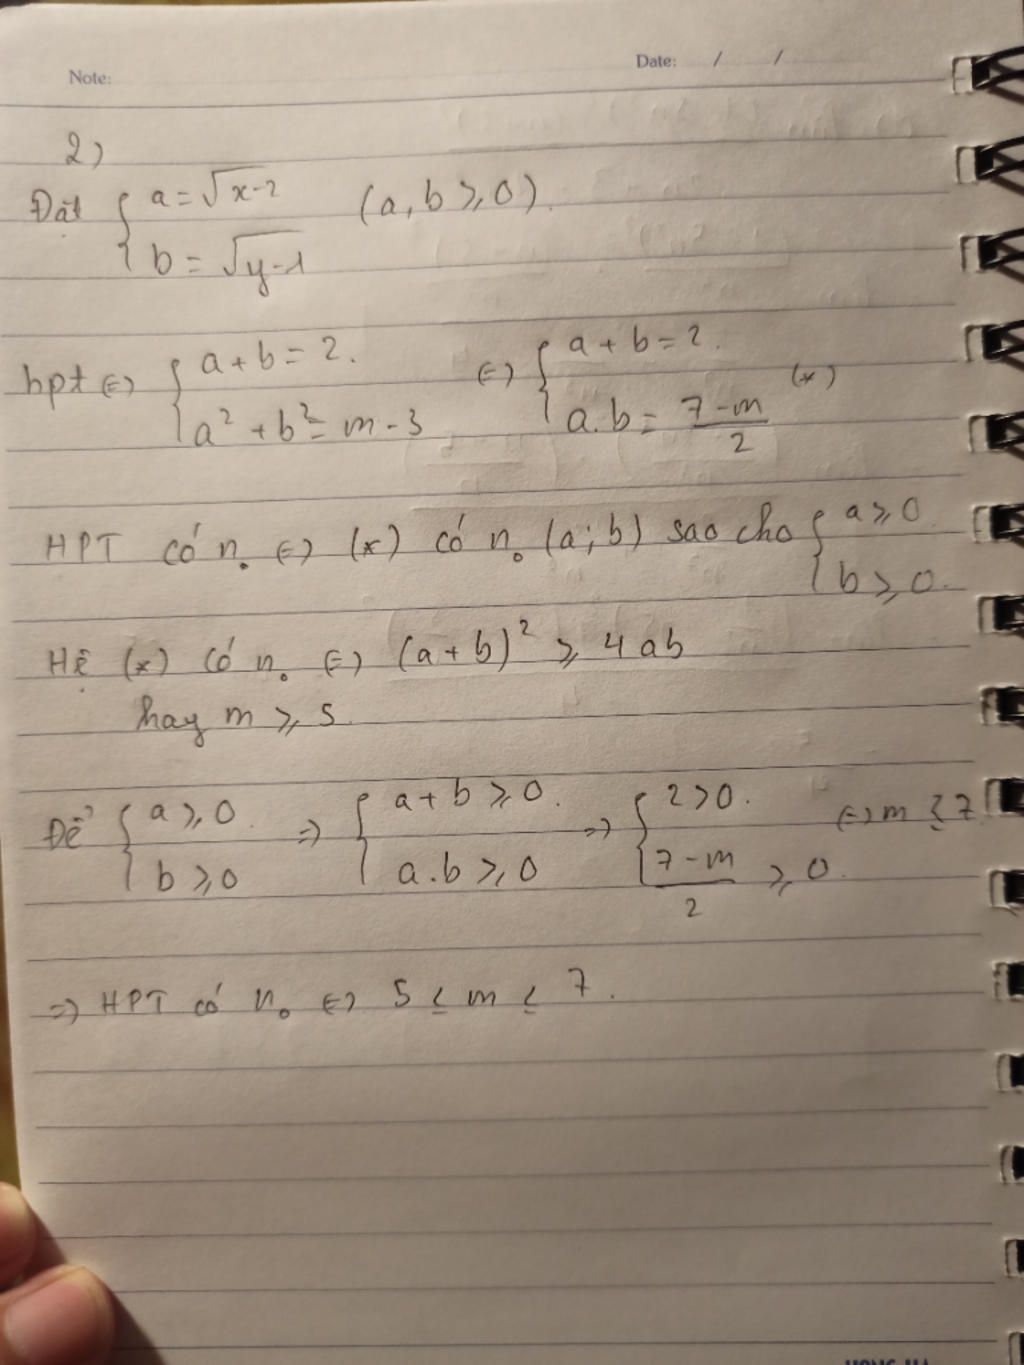 Note:
Date: / /
2)
Đặt { a = √x-2 (a, b ≥ 0).
b = √y-1
hpt ⇔ { a + b = 2. ⇔ { a + b = 2.
a² + b² = m - 3 a.b = (7-m)/2 (*)
HPT có n₀ ⇔ (*) có n₀ (a; b) sao cho { a ≥ 0
b ≥ 0.
Hệ (*) có n₀ ⇔ (a+b)² ≥ 4ab
hay m ≥ 5.
Để { a ≥ 0. ⇒ { a + b ≥ 0. ⇒ { 2 > 0. ⇔ m ≤ 7
b ≥ 0 a.b ≥ 0 (7-m)/2 ≥ 0.
⇒ HPT có n₀ ⇔ 5 ≤ m ≤ 7.